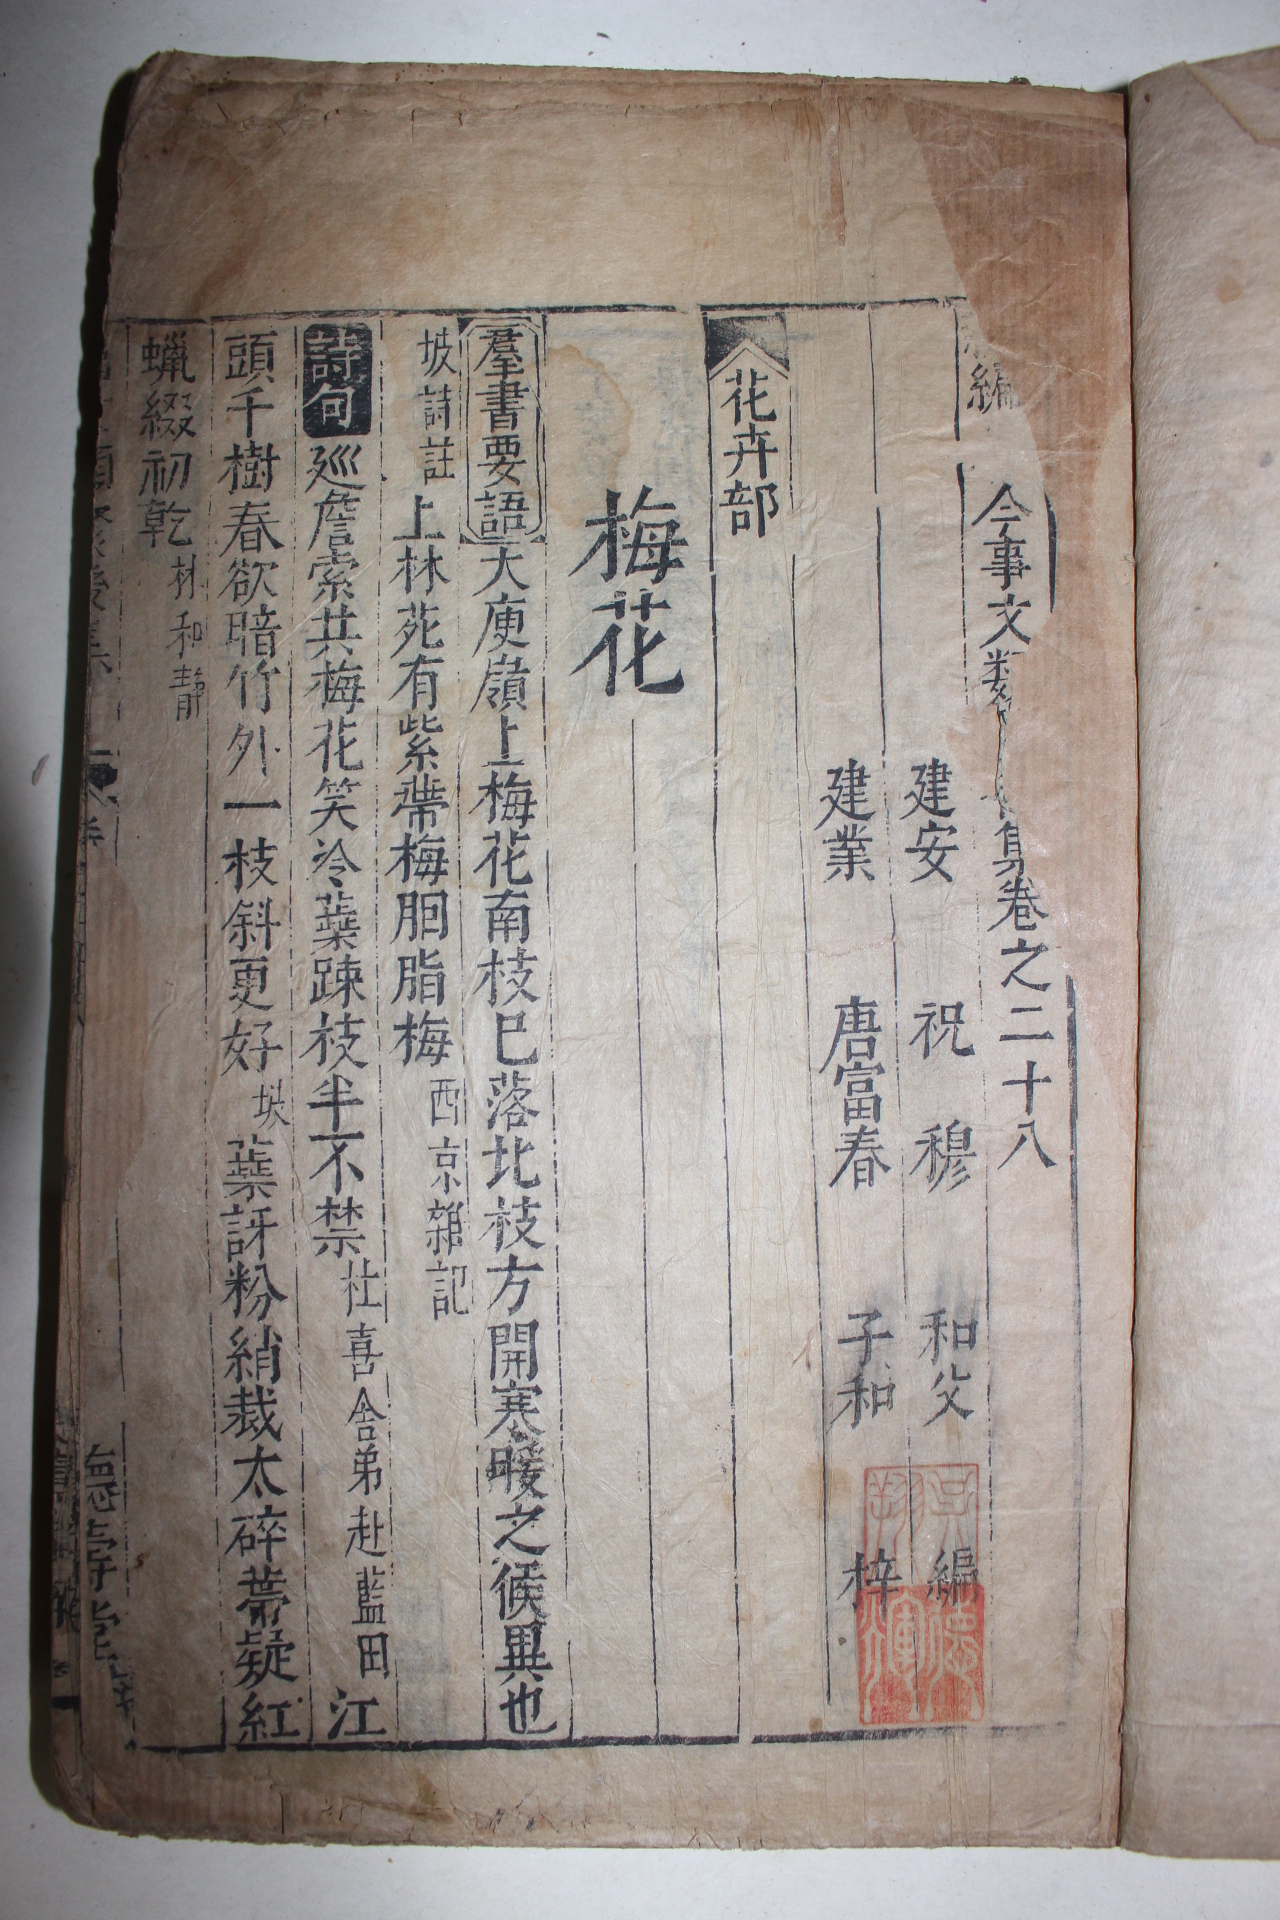 編
今事文類 集卷之二十八
建安 祝 穆 和父 編
建業 唐富春 子和 梓
花卉部
梅花
羣書要語 大庾嶺上梅花南枝已落北枝方開寒暖之候異也
坡詩註 上林苑有紫蔕梅胭脂梅 西京雜記
詩句 廵詹索共梅花笑冷蘂踈枝半不禁 杜喜舍弟赴藍田 江
頭千樹春欲暗竹外一枝斜更好 坡 蘂訝粉綃裁太碎蔕疑紅
蠟綴初乾 林和靜
德壽堂